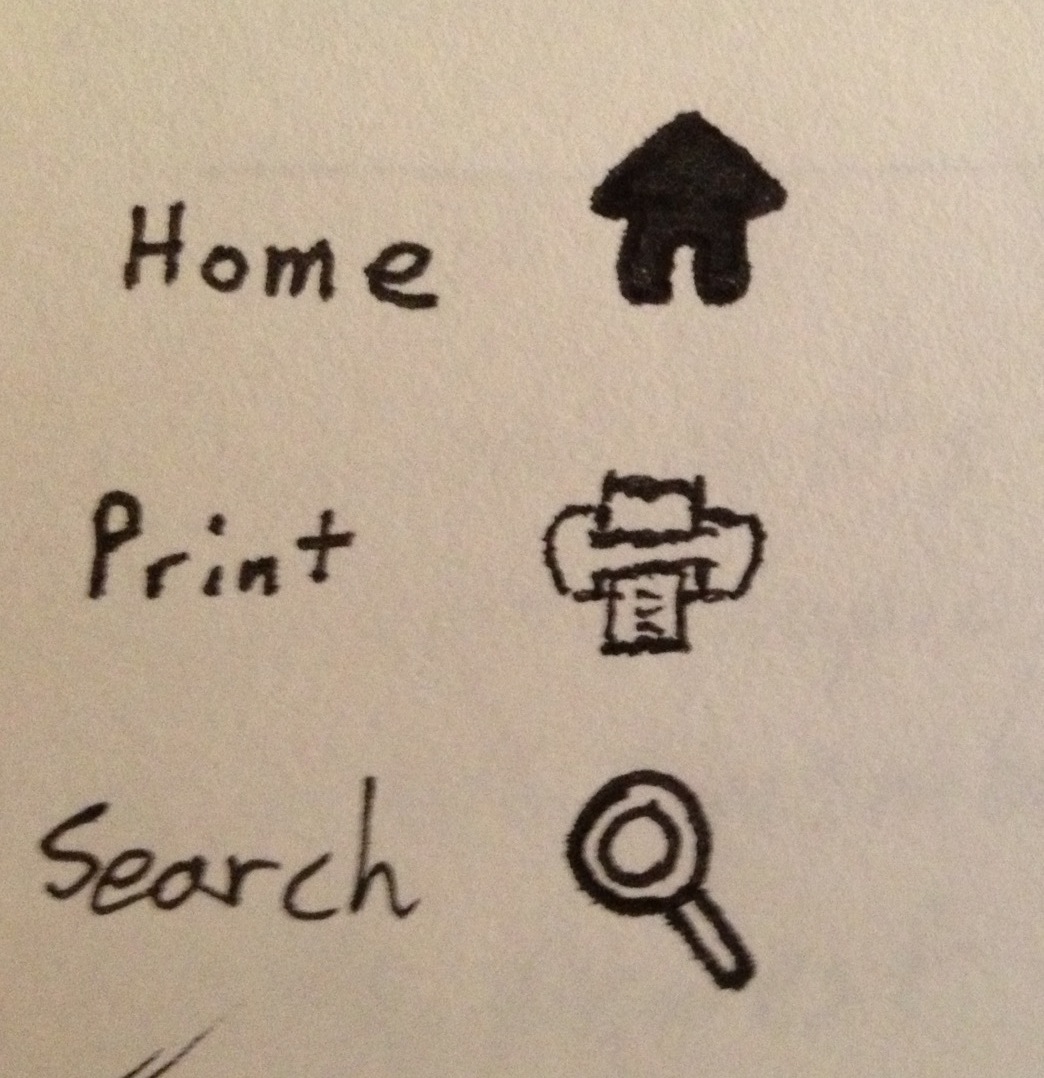 Home
Print
Search